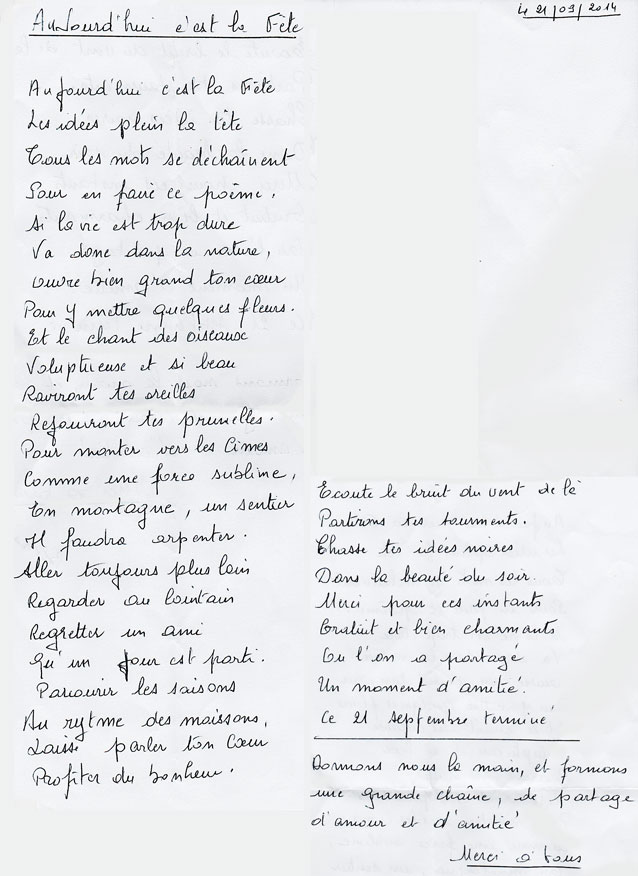 Aujourd'hui c'est la Fête
Le 21/09/2014
Aujourd'hui c'est la Fête
Les idées plein la tête
Tous les mots se déchaînent
Pour en faire ce poème.
Si la vie est trop dure
Va donc dans la nature,
Ouvre bien grand ton cœur
Pour y mettre quelques fleurs.
Et le chant des oiseaux
Voluptueuse et si beau
Raviront tes oreilles
Rejouiront tes prunelles.
Pour monter vers les Cimes
Comme une force sublime,
En montagne, un sentier
Il faudra arpenter.
Aller toujours plus loin
Regarder au lointain
Regretter un ami
Qu'un jour est parti.
Parcourir les saisons
Au rytme des moissons,
Laisse parler ton Cœur
Profiter du bonheur.
Ecoute le bruit du vent de là
Partirons tes tourments.
Chasse tes idées noires
Dans la beauté du soir.
Merci pour ces instants
Gratuit et bien charmants
Ou l'on a partagé
Un moment d'amitié.
Ce 21 septembre terminé
Donnons nous la main, et formons
une grande chaîne, de partage
d'amour et d'amitié
Merci à tous